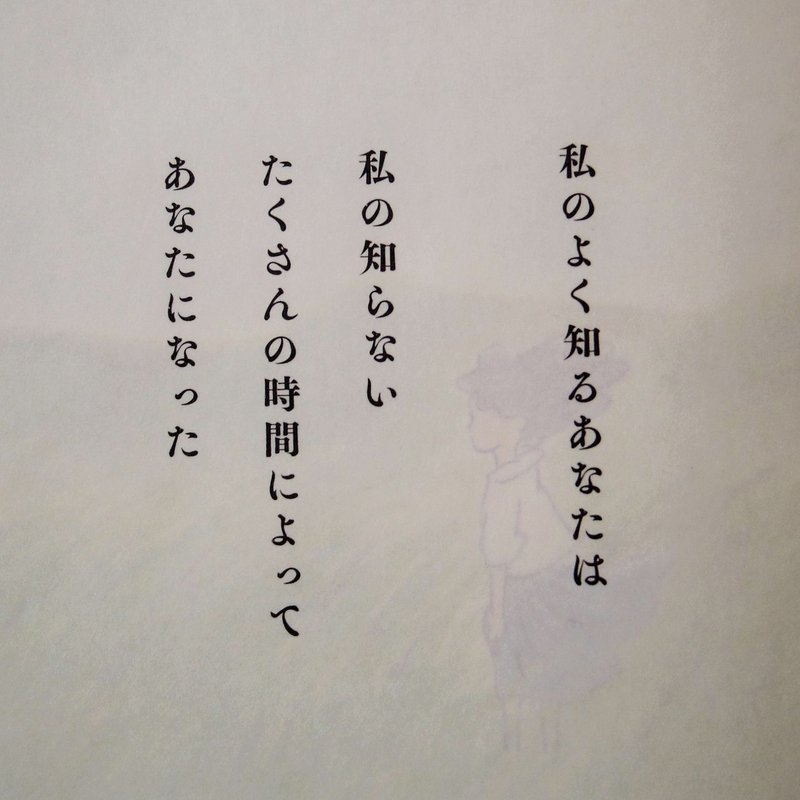 私のよく知るあなたは
私の知らない
たくさんの時間によって
あなたになった